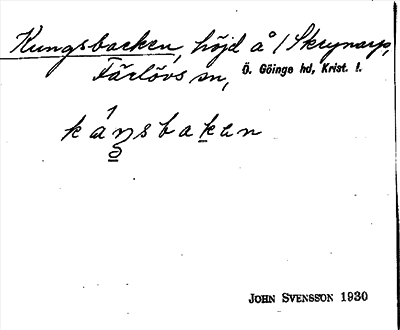 Kungsbacken, höjd å 1 Skrynarp,
Färlövs sn, Ö. Göinge hd, Krist. l.
káŋsbakən
JOHN SVENSSON 1930